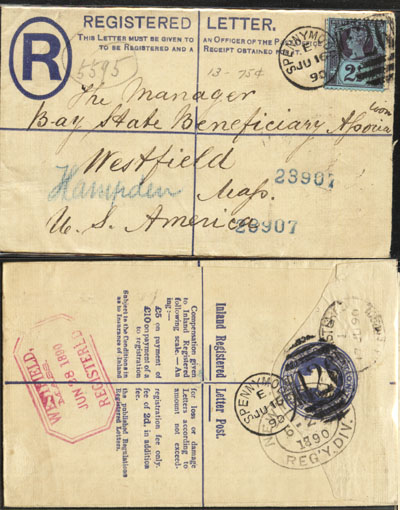 REGISTERED LETTER.
THIS LETTER MUST BE GIVEN TO AN OFFICER OF THE P
TO BE REGISTERED AND A RECEIPT OBTAINED
R
5595
13 · 75¢
SPENNYMOO
E
JU 16
90
The Manager
Bay State Beneficiary Associa
tion
Westfield
Hampden Mass.
23907
U. S. America
23907
Inland Registered Letter Post.
Compensation given for loss or damage
to Inland Registered Letters according to
following scale.—As amount not exceed-
ing:—
£5 on payment of a registration fee only.
£10 on payment of a fee of 2d. in addition
to registration
Subject to the Conditions as to Insurance of Inland Registered Letters.
the published Regulations
WESTFIELD,
JUN 28 1890
REGISTERED
SPENNYMOO
E
JU 16
90
1890
REG'Y. DIV.